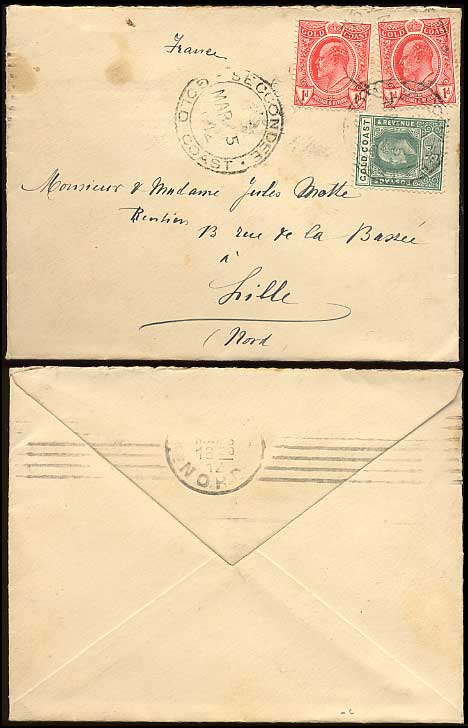 France
GOLD COAST
1d 1d
POSTAGE & REVENUE
GOLD COAST
1d 1d
POSTAGE & REVENUE
SECCONDEE
MAR 5
GOLD COAST
GOLD COAST
POSTAGE & REVENUE
Monsieur & Madame Jules Motte
Rentiers
13 rue de la Bassée
à
Lille
(Nord
12
NORD